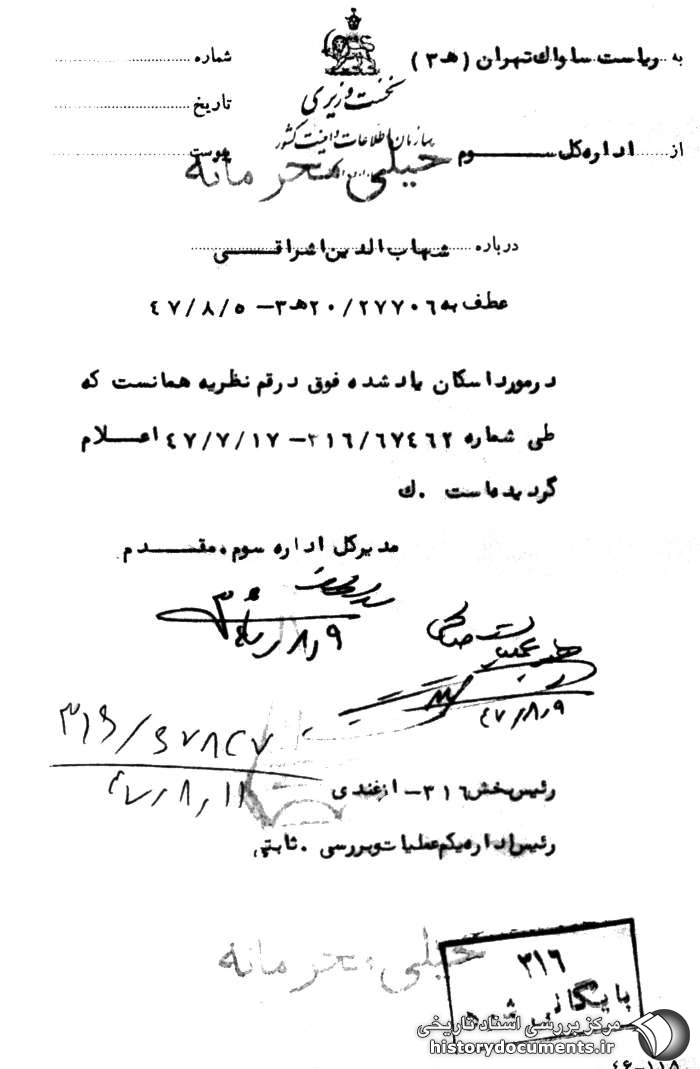 به ریاست ساواک تهران (هـ ۳)
شماره
نخست وزیری
تاریخ
سازمان اطلاعات و امنیت کشور
از اداره کل سوم
پیوست
خیلی محرمانه
درباره شهاب الدین اشراقی
عطف به ۲۰/۲۷۷۰۶هـ۳ - ۴۷/۸/۵
در مورد اسکان یاد شده فوق در قم نظریه همانست که
طی شماره ۳۱۶/۶۷۴۶۲ - ۴۷/۷/۱۷ اعلام
گردیده است . ک
مدیر کل اداره سوم . مقدم
۴۷/۸/۹
۴۷/۸/۹
۳۱۶/۶۷۸۲۷
۴۷/۸/۱۱
رئیس بخش ۳۱۶ - ازغندی
رئیس اداره یکم عملیات و بررسی . ثابتی
خیلی محرمانه
۳۱۶
بایگانی شود
مرکز بررسی اسناد تاریخی
historydocuments.ir